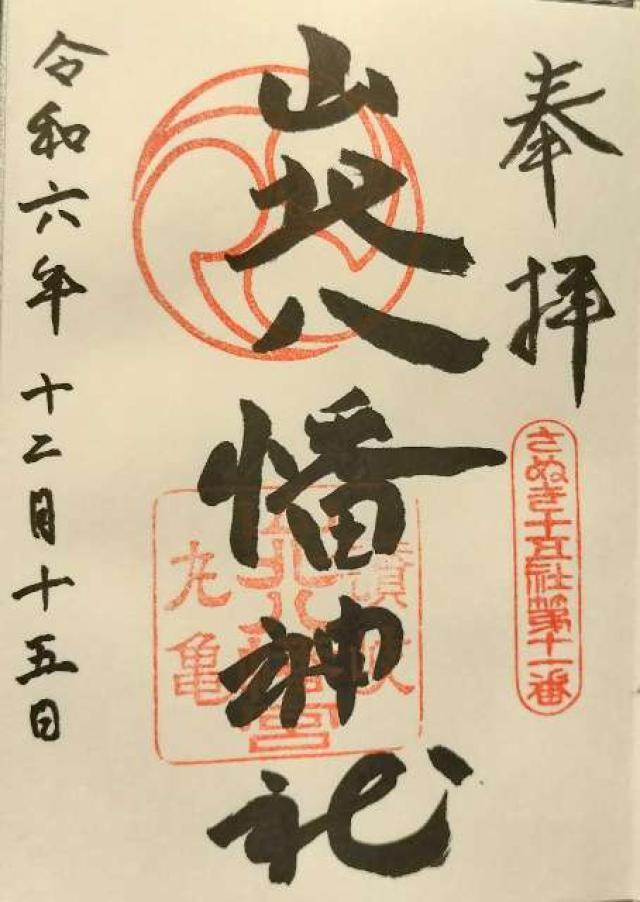 奉拝
さぬき十五社第十一番
山北八幡神社
讃岐
山北八幡宮
丸亀
令和六年十二月十五日